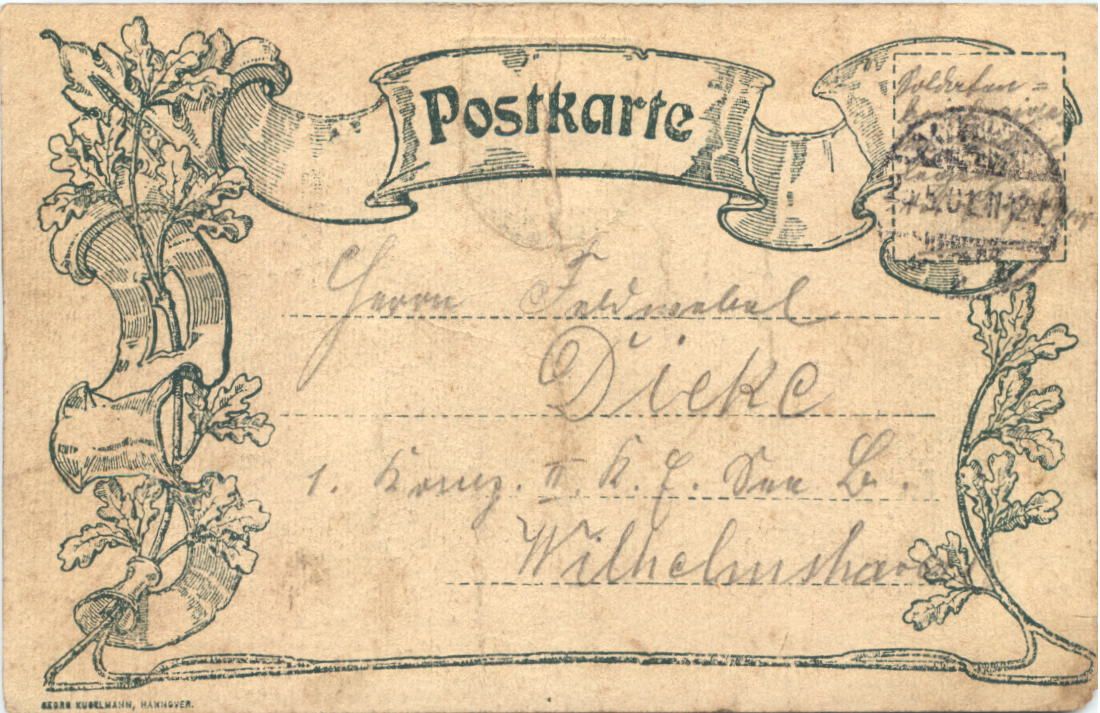 Postkarte
Soldaten=
5.01.11-12V
Herrn Feldwebel
Dieke
1. Komp. II. K. E. See B.
Wilhelmshaven
GEORG KUGELMANN, HANNOVER.